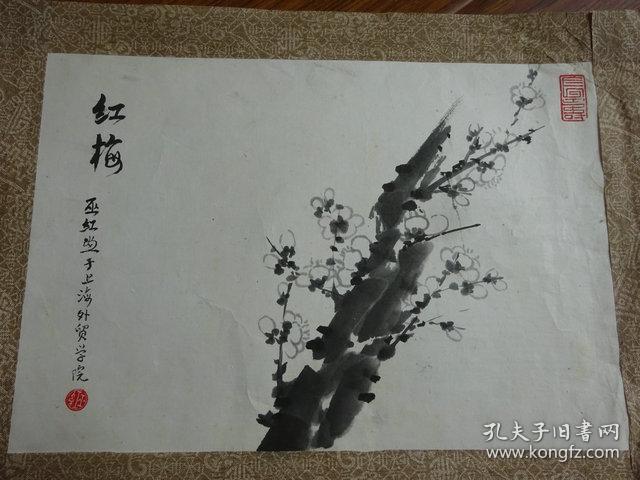 红梅
巫红
于上海外贸学院
孔夫子旧书网
www.kongfz.com